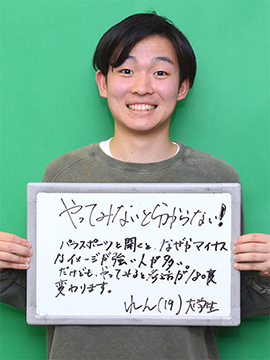 やってみないと分からない!
パラスポーツと聞くと、なぜかマイナス
なイメージが強い人が多い。
だけども、やってみると考え方が180度
変わります。
れん(19)大学生